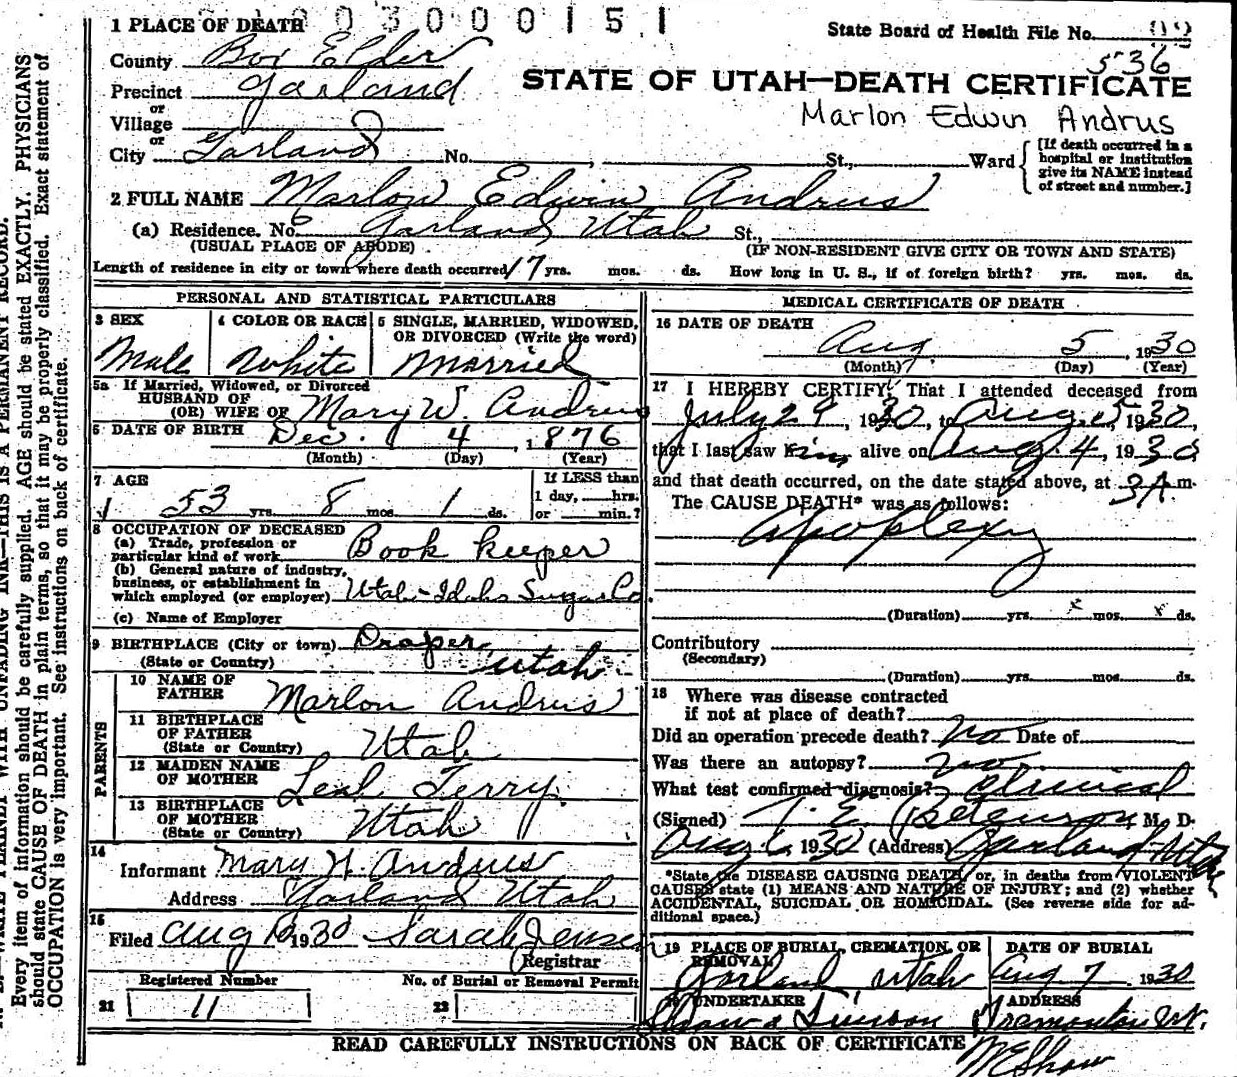 003000151
1 PLACE OF DEATH
State Board of Health File No.
536
County Box Elder
STATE OF UTAH—DEATH CERTIFICATE
Precinct Garland
or
Village
Marlon Edwin Andrus
or
City Garland No. , St., Ward
[If death occurred in a
hospital or institution
give its NAME instead
of street and number.]
2 FULL NAME Marlon Edwin Andrus
(a) Residence. No. Garland, Utah St.,
(USUAL PLACE OF ABODE) (IF NON-RESIDENT GIVE CITY OR TOWN AND STATE)
Length of residence in city or town where death occurred 17 yrs. mos. ds. How long in U. S., if of foreign birth? yrs. mos. ds.
PERSONAL AND STATISTICAL PARTICULARS
3 SEX
Male
4 COLOR OR RACE
White
5 SINGLE, MARRIED, WIDOWED,
OR DIVORCED (Write the word)
Married
5a If Married, Widowed, or Divorced
HUSBAND OF
(OR) WIFE OF Mary W. Andrus
6 DATE OF BIRTH Dec. 4 , 1876
(Month) (Day) (Year)
7 AGE
53 yrs. 8 mos. 1 ds.
If LESS than
1 day, hrs.
or min.?
8 OCCUPATION OF DECEASED
(a) Trade, profession or
particular kind of work Book keeper
(b) General nature of industry,
business, or establishment in
which employed (or employer) Utah-Idaho Sugar Co.
(c) Name of Employer
9 BIRTHPLACE (City or town) Draper,
(State or Country) Utah
PARENTS
10 NAME OF
FATHER Marlon Andrus
11 BIRTHPLACE
OF FATHER
(State or Country) Utah
12 MAIDEN NAME
OF MOTHER Leah Terry
13 BIRTHPLACE
OF MOTHER
(State or Country) Utah
14
Informant Mary W. Andrus
Address Garland Utah
15
Filed Aug 1930 Sarah Jensen
Registrar
Registered Number
21 11
No. of Burial or Removal Permit
22
MEDICAL CERTIFICATE OF DEATH
16 DATE OF DEATH
Aug. 5 , 1930
(Month) (Day) (Year)
17 I HEREBY CERTIFY, That I attended deceased from
July 29, 1930, to Aug. 5, 1930,
that I last saw him alive on Aug. 4, 1930
and that death occurred, on the date stated above, at 3A.m.
The CAUSE DEATH* was as follows:
Apoplexy
(Duration) yrs. x mos. x ds.
Contributory
(Secondary)
(Duration) yrs. mos. ds.
18 Where was disease contracted
if not at place of death?
Did an operation precede death? No Date of
Was there an autopsy? No.
What test confirmed diagnosis? Clinical
(Signed) , M. D.
Aug 6, 1930 (Address) Garland Utah
*State the DISEASE CAUSING DEATH, or, in deaths from VIOLENT
CAUSES state (1) MEANS AND NATURE OF INJURY; and (2) whether
ACCIDENTAL, SUICIDAL OR HOMICIDAL. (See reverse side for ad-
ditional space.)
19 PLACE OF BURIAL, CREMATION, OR
REMOVAL
Garland, Utah
DATE OF BURIAL
Aug 7 1930
20 UNDERTAKER
Shaw &
ADDRESS
Tremonton Ut.
READ CAREFULLY INSTRUCTIONS ON BACK OF CERTIFICATE
Shaw
WRITE PLAINLY WITH UNFADING INK—THIS IS A PERMANENT RECORD.
Every item of information should be carefully supplied. AGE should be stated EXACTLY. PHYSICIANS
should state CAUSE OF DEATH in plain terms, so that it may be properly classified. Exact statement of
OCCUPATION is very important. See instructions on back of certificate.